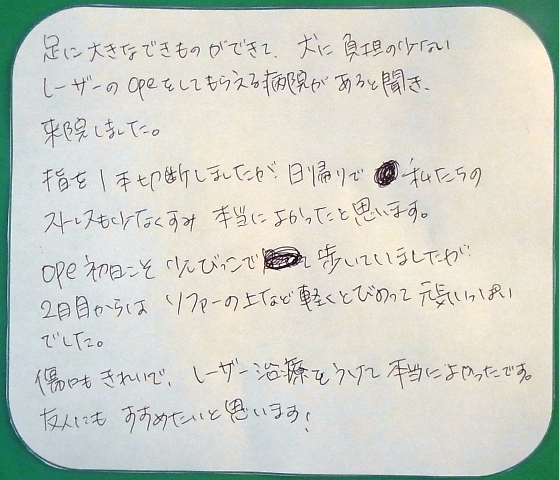 足に大きなできものができて、犬に負担の少ない
レーザーのopeをしてもらえる病院があると聞き、
来院しました。
指を1本切断しましたが、日帰りで 私たちの
ストレスも少なくすみ 本当によかったと思います。
ope初日こそ びっこで 歩いていましたが
2日目からは ソファーの上など軽くとびのって 元気いっぱい
でした。
傷口もきれいで、レーザー治療をうけて本当によかったです。
友人にも すすめたいと思います!